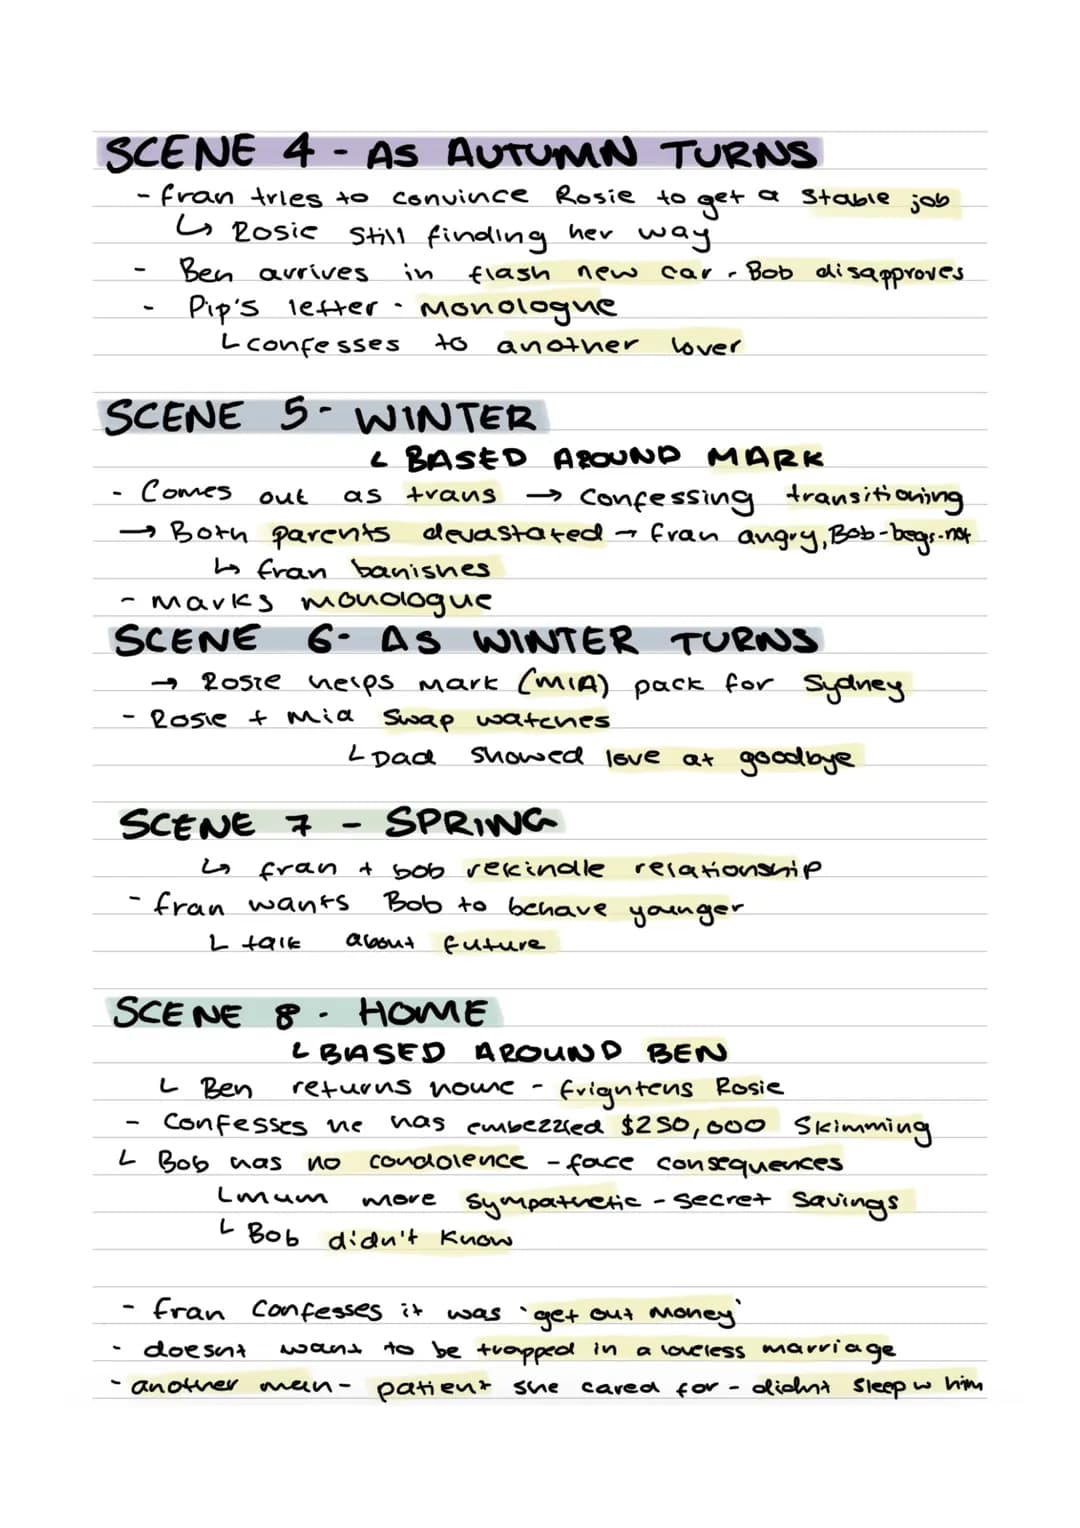 SCENE 4 - AS AUTUMN TURNS
- fran tries to convince Rosie to get a stable job
↳ Rosie still finding her way
- Ben arrives in flash new car - Bob disapproves
- Pip's letter - Monologue
L confesses to another lover
SCENE 5 - WINTER
L BASED AROUND MARK
- Comes out as trans → Confessing transitioning
→ Both parents devastated → fran angry, Bob-begs-not
↳ fran banishes
- Marks monologue
SCENE 6 - AS WINTER TURNS
→ Rosie helps Mark (MIA) pack for Sydney
- Rosie + Mia swap watches
L Dad showed love at goodbye
SCENE 7 - SPRING
↳ fran + bob rekindle relationship
- fran wants Bob to behave younger
L talk about future
SCENE 8 - HOME
L BASED AROUND BEN
L Ben returns home - frightens Rosie
- Confesses he has embezzled $250,000 skimming
L Bob has no condolence - face consequences
L mum more sympathetic - secret savings
L Bob didn't know
- fran confesses it was 'get out money'
- doesnt want to be trapped in a loveless marriage
- another man - patient she cared for - didnt sleep w him